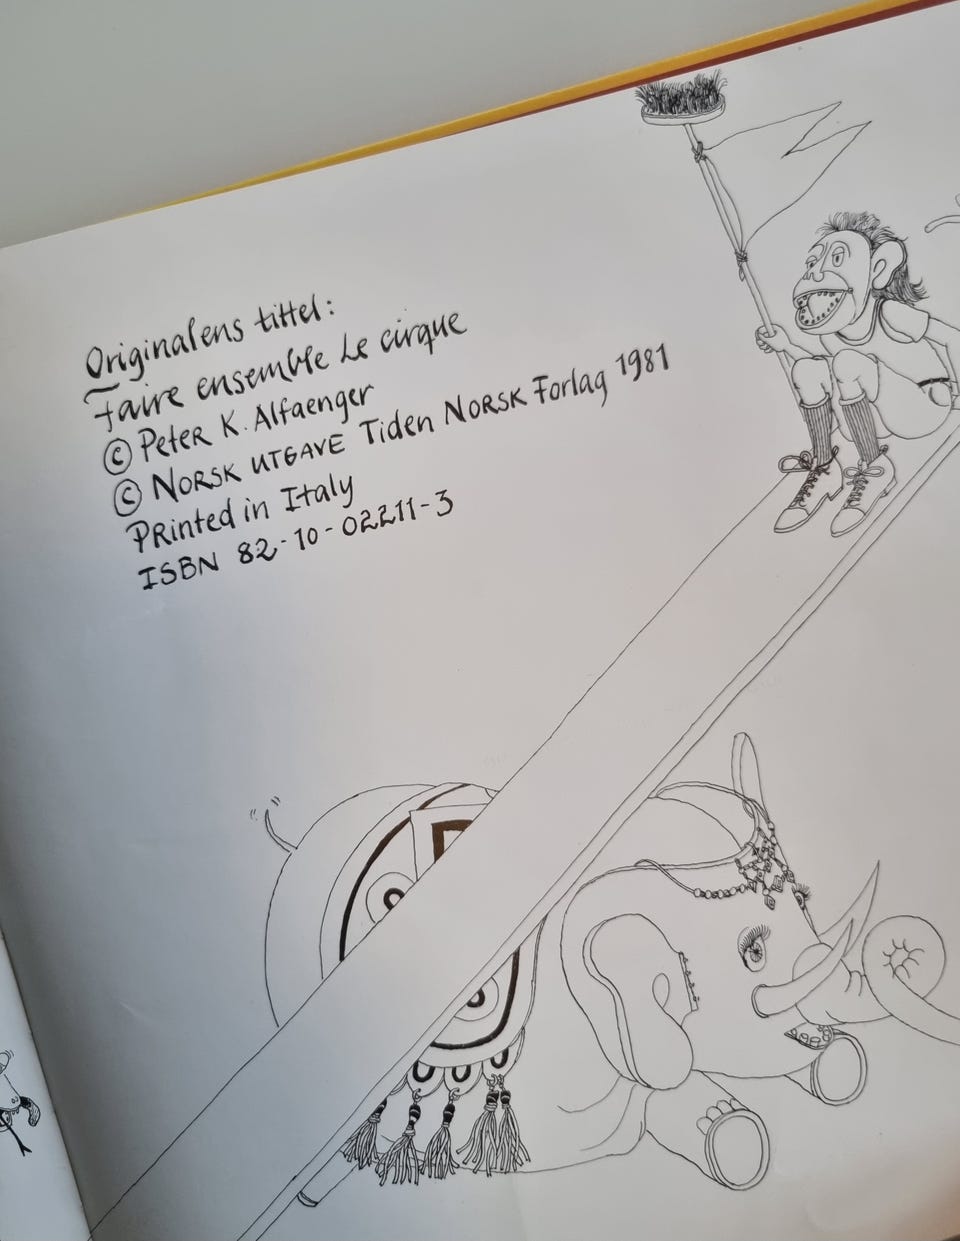 Originalens tittel:
Faire ensemble Le cirque
© Peter K. Alfaenger
© Norsk utgave Tiden Norsk Forlag 1981
Printed in Italy
ISBN 82-10-02211-3